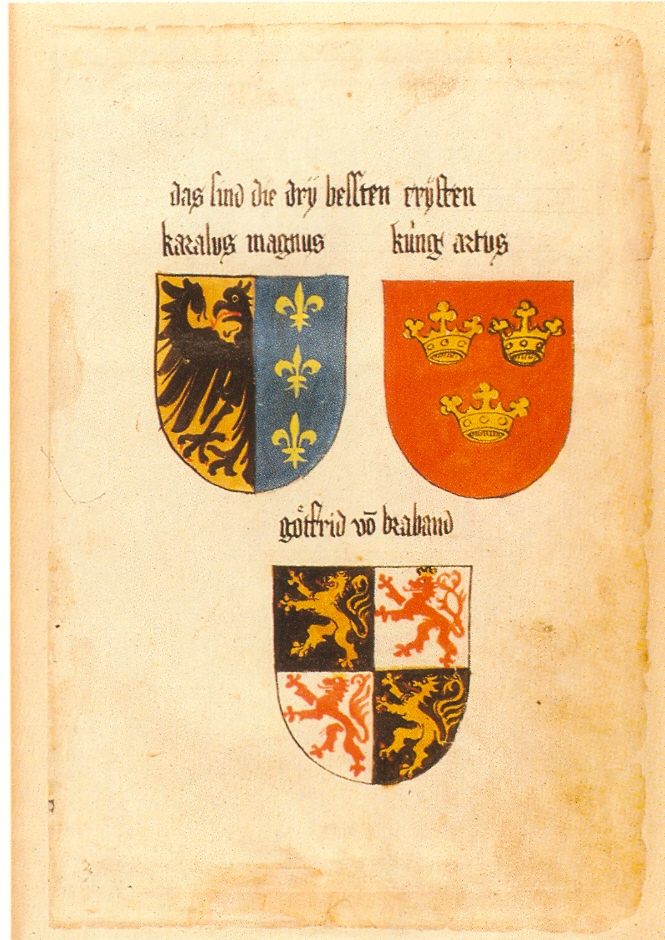 das sind die drÿ bessten crÿsten
karalus magnus küng artus
götfrid vō braband